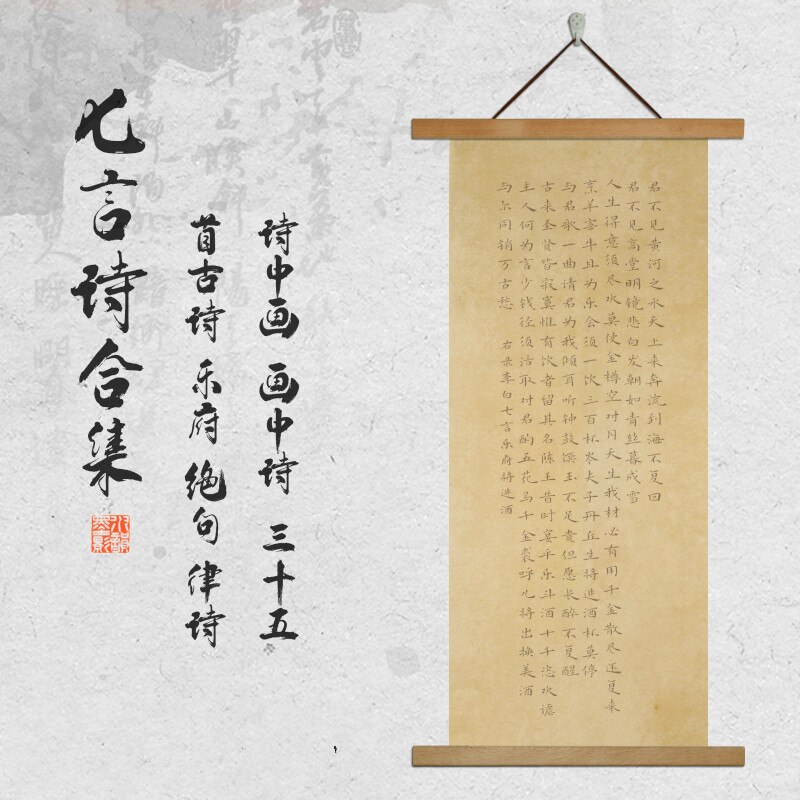 七言诗合集
诗中画 画中诗 三十五
首古诗 乐府 绝句 律诗
君不见黄河之水天上来奔流到海不复回
君不见高堂明镜悲白发朝如青丝暮成雪
人生得意须尽欢莫使金樽空对月天生我材必有用千金散尽还复来
烹羊宰牛且为乐会须一饮三百杯岑夫子丹丘生将进酒杯莫停
与君歌一曲请君为我倾耳听钟鼓馔玉不足贵但愿长醉不复醒
古来圣贤皆寂寞惟有饮者留其名陈王昔时宴平乐斗酒十千恣欢谑
主人何为言少钱径须沽取对君酌五花马千金裘呼儿将出换美酒
与尔同销万古愁 右录李白七言乐府将进酒